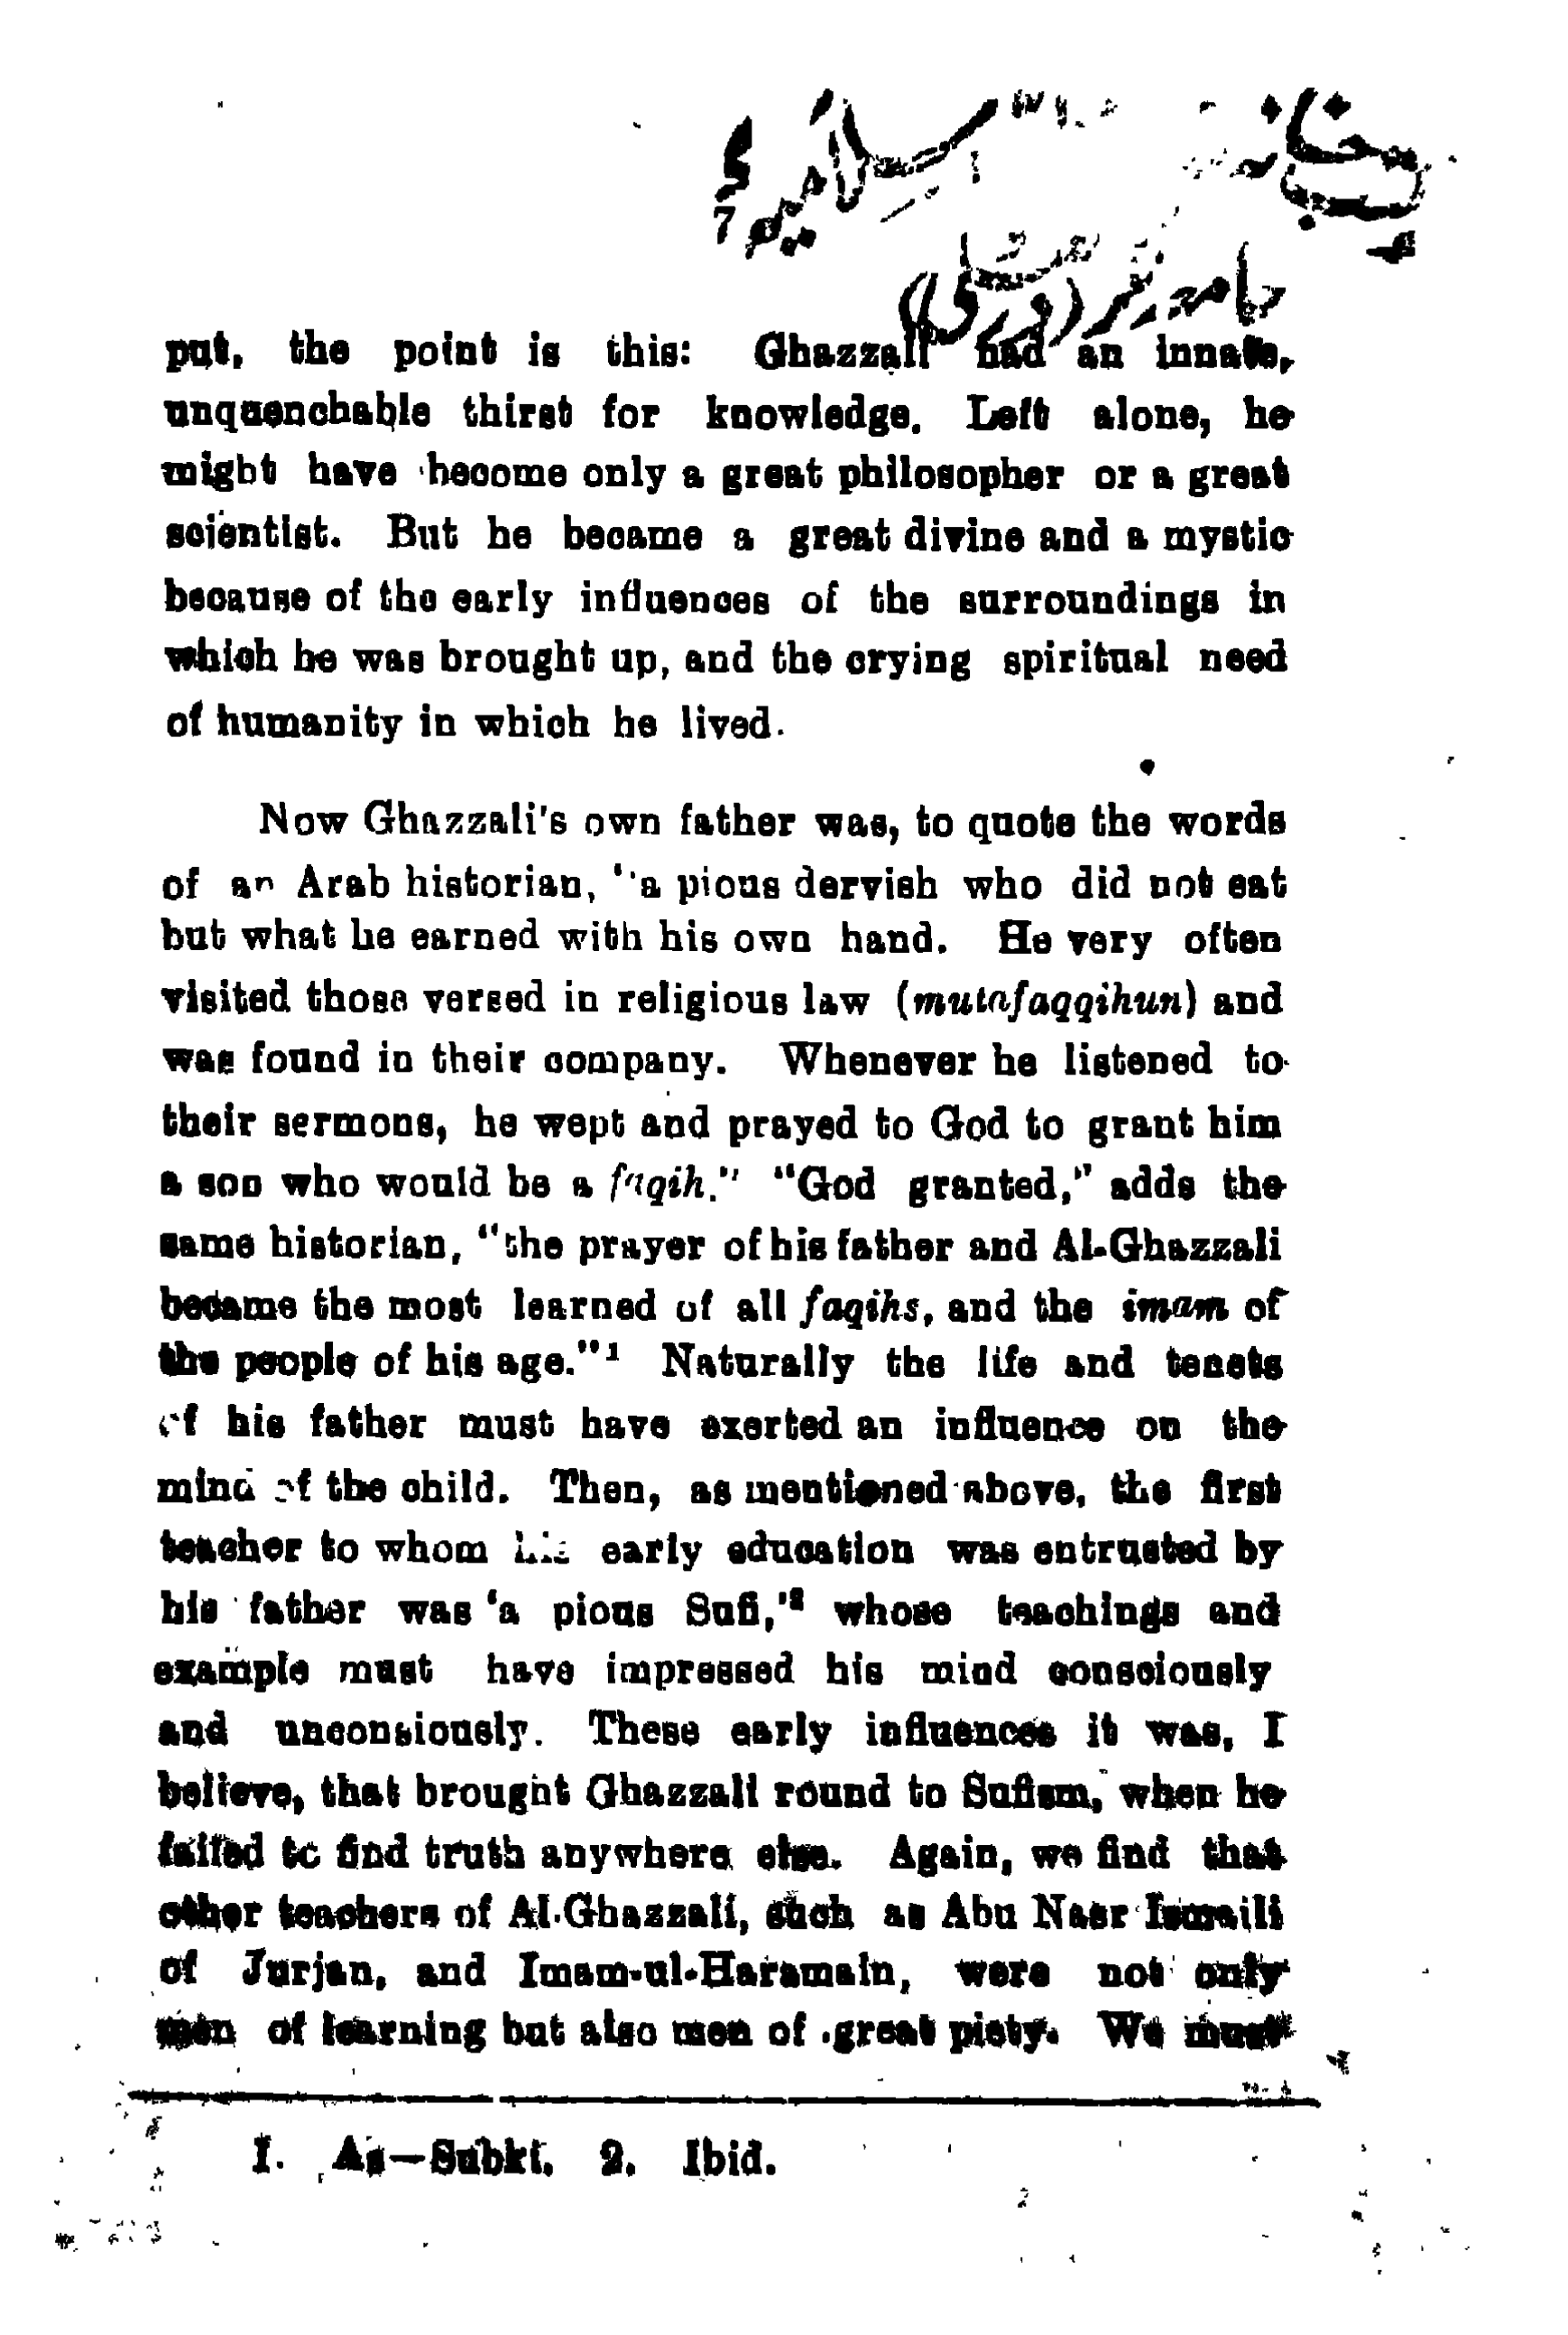 7
put, the point is this: Ghazzali had an innate,
unquenchable thirst for knowledge. Left alone, he
might have become only a great philosopher or a great
scientist. But he became a great divine and a mystic
because of the early influences of the surroundings in
which he was brought up, and the crying spiritual need
of humanity in which he lived.
Now Ghazzali's own father was, to quote the words
of an Arab historian, "a pious dervish who did not eat
but what he earned with his own hand. He very often
visited those versed in religious law (mutafaqqihun) and
was found in their company. Whenever he listened to
their sermons, he wept and prayed to God to grant him
a son who would be a faqih." "God granted," adds the
same historian, "the prayer of his father and Al-Ghazzali
became the most learned of all faqihs, and the imam of
the people of his age."¹ Naturally the life and tenets
of his father must have exerted an influence on the
mind of the child. Then, as mentioned above, the first
teacher to whom his early education was entrusted by
his father was 'a pious Sufi,'² whose teachings and
example must have impressed his mind consciously
and unconsiously. These early influences it was, I
believe, that brought Ghazzali round to Sufism, when he
failed to find truth anywhere else. Again, we find that
other teachers of Al-Ghazzali, such as Abu Nasr Ismaili
of Jurjan, and Imam-ul-Haramain, were not only
men of learning but also men of great piety. We must
I. As—Subki. 2. Ibid.